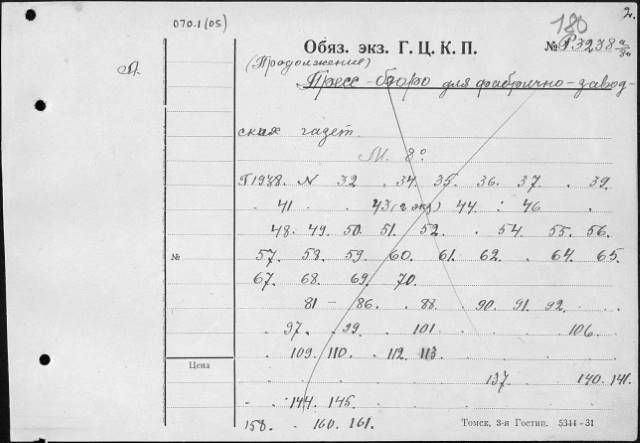 070.1(05)
2.
180
Обяз. экз. Г. Ц. К. П.
№ Р3238 а/80
(Продолжение)
Пресс-бюро для фабрично-завод-
ских газет
М. 8°
Г1938. N 32 . 34. 35. 36. 37. . 39.
. 41 . . 43 (2 экз) 44. : 46 .
48. 49. 50. 51. 52. . 54. 55. 56.
№ 57. 58. 59. 60. 61. 62. . 64. 65.
67. 68. 69. 70.
81 - 86. . 88. . 90. 91. 92. . .
. 97. . 99. . 101 . . . . 106.
. 109. 110. . 112. 113
Цена
137. . . 140. 141.
. . 144. 145.
158. . 160. 161.
Томск, 3-я Гостип. 5344-31